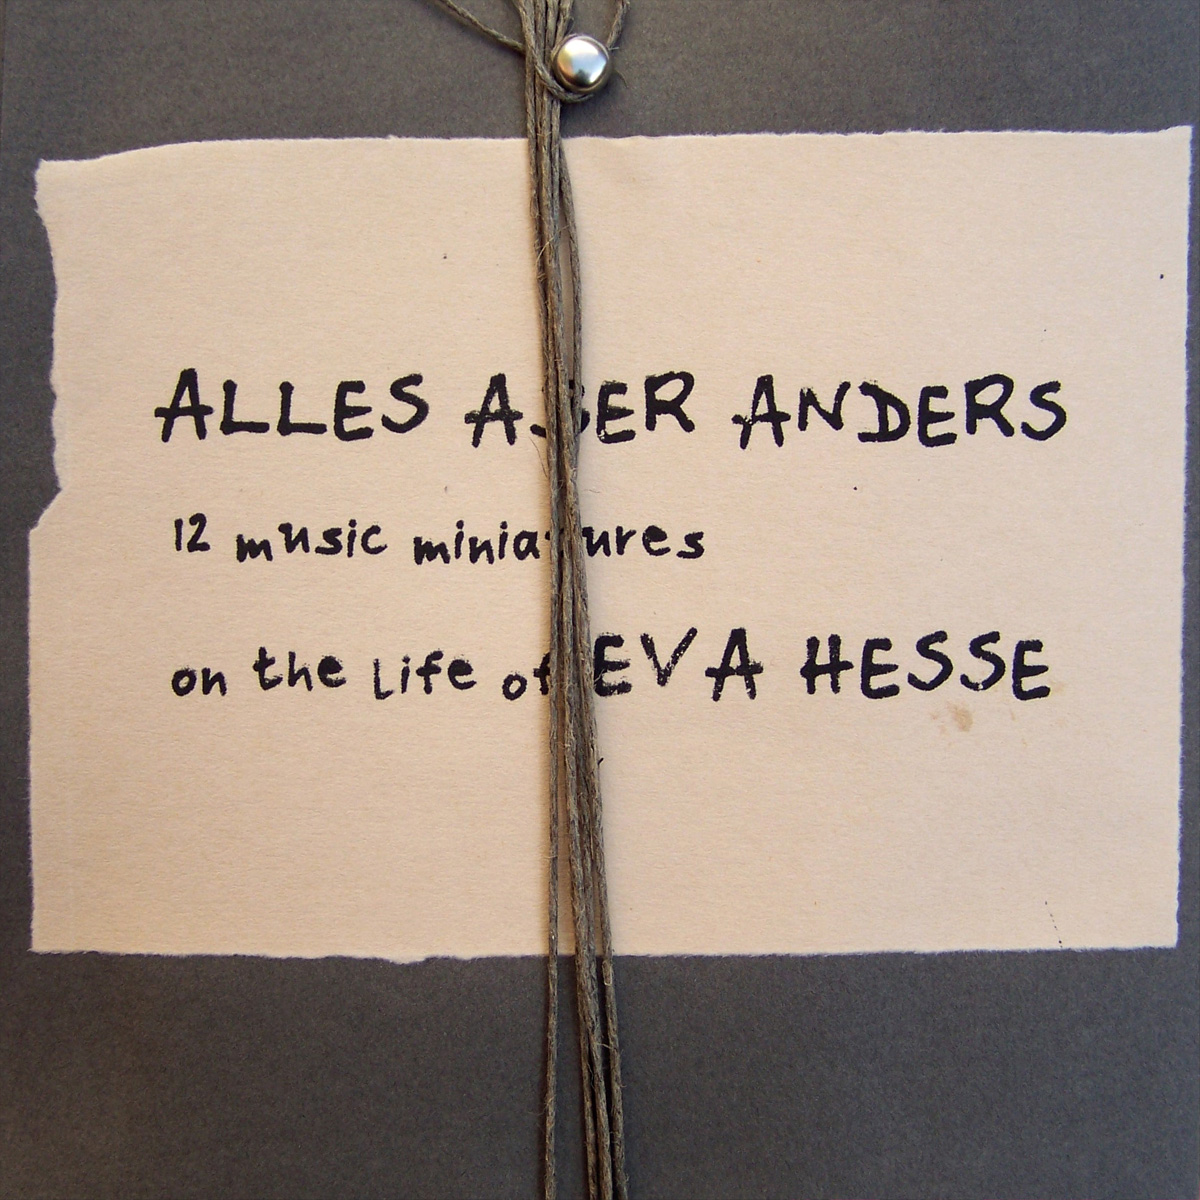 ALLES ABER ANDERS
12 music miniatures
on the life of EVA HESSE